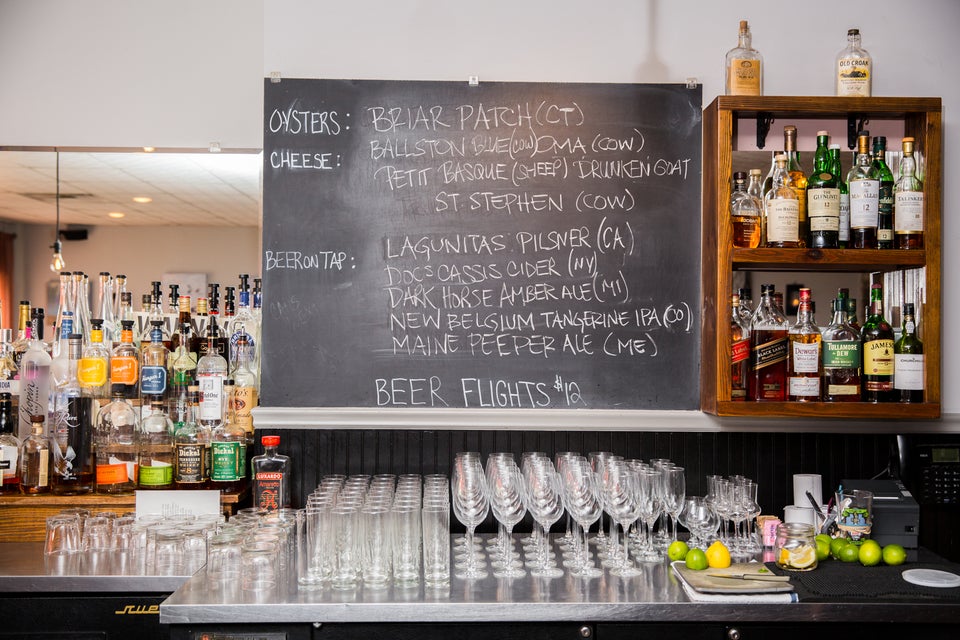 OYSTERS: BRIAR PATCH (CT)
CHEESE: BALLSTON BLUE (COW) OMA (COW)
PETIT BASQUE (SHEEP) DRUNKEN GOAT
ST. STEPHEN (COW)
BEER ON TAP: LAGUNITAS PILSNER (CA)
DOCS CASSIS CIDER (NY)
DARK HORSE AMBER ALE (MI)
NEW BELGIUM TANGERINE IPA (CO)
MAINE PEEPER ALE (ME)
BEER FLIGHTS $12
OLD CROAK
THE GLENLIVET
12
MACALLAN
12
TALISKER
BLACK LABEL
Dewar's
TULLAMORE
DEW
JAMESON
Dickel
Dickel
LUXARDO
true